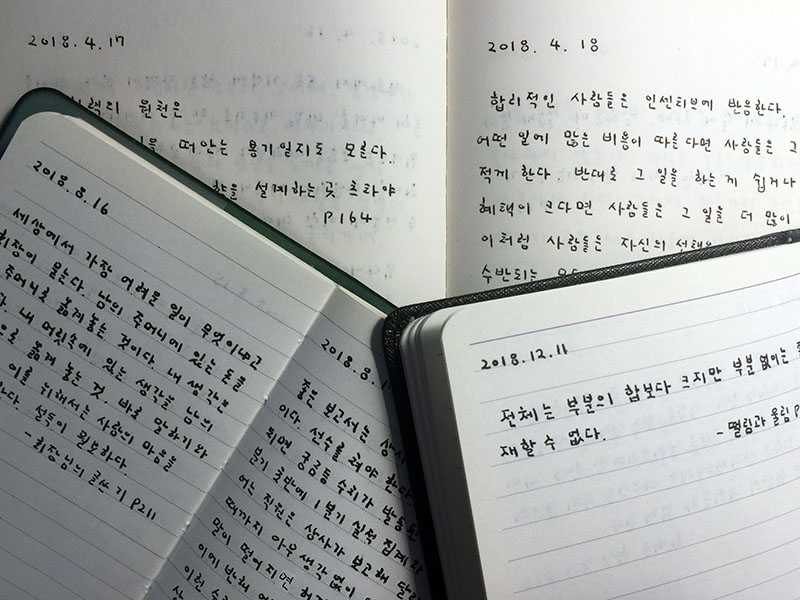 2018. 4. 17
원천은
떠안는 용기일지도 모른다.
설계하는 곳 츠타야
P164
2018. 4. 18
합리적인 사람들은 인센티브에 반응한다.
어떤 일에 많은 비용이 따른다면 사람들은 그
적게 한다. 반대로 그 일을 하는게 쉽거나
혜택이 크다면 사람들은 그 일을 더 많이
이처럼 사람들은 자신의
수반되는
2018. 8. 16
세상에서 가장 어려운 일이 무엇이냐고
회장이 묻는다. 남의 주머니에 있는 돈을
주머니로 옮겨놓는 것이다. 내 생각은
내 머릿속에 있는 생각을 남의
으로 옮겨 놓는 것. 바로 말하기와
이를 위해서는 사람의 마음을
한다. 설득이 필요하다.
- 회장님의 글쓰기 P211
2018. 8. 1
좋은 보고서는
이다. 선수를 쳐야 한다.
되면 궁금증 수치가 발동
분기 초만에 1분기 실적 집계와
어느 직원은 상사가 보고해 달라
때까지 아무 생각 없이
말이 떨어지면
이에 반해
이런
2018. 12. 11
전체는 부분의 합보다 크지만 부분 없이는
재할 수 없다.
- 떨림과 울림 P